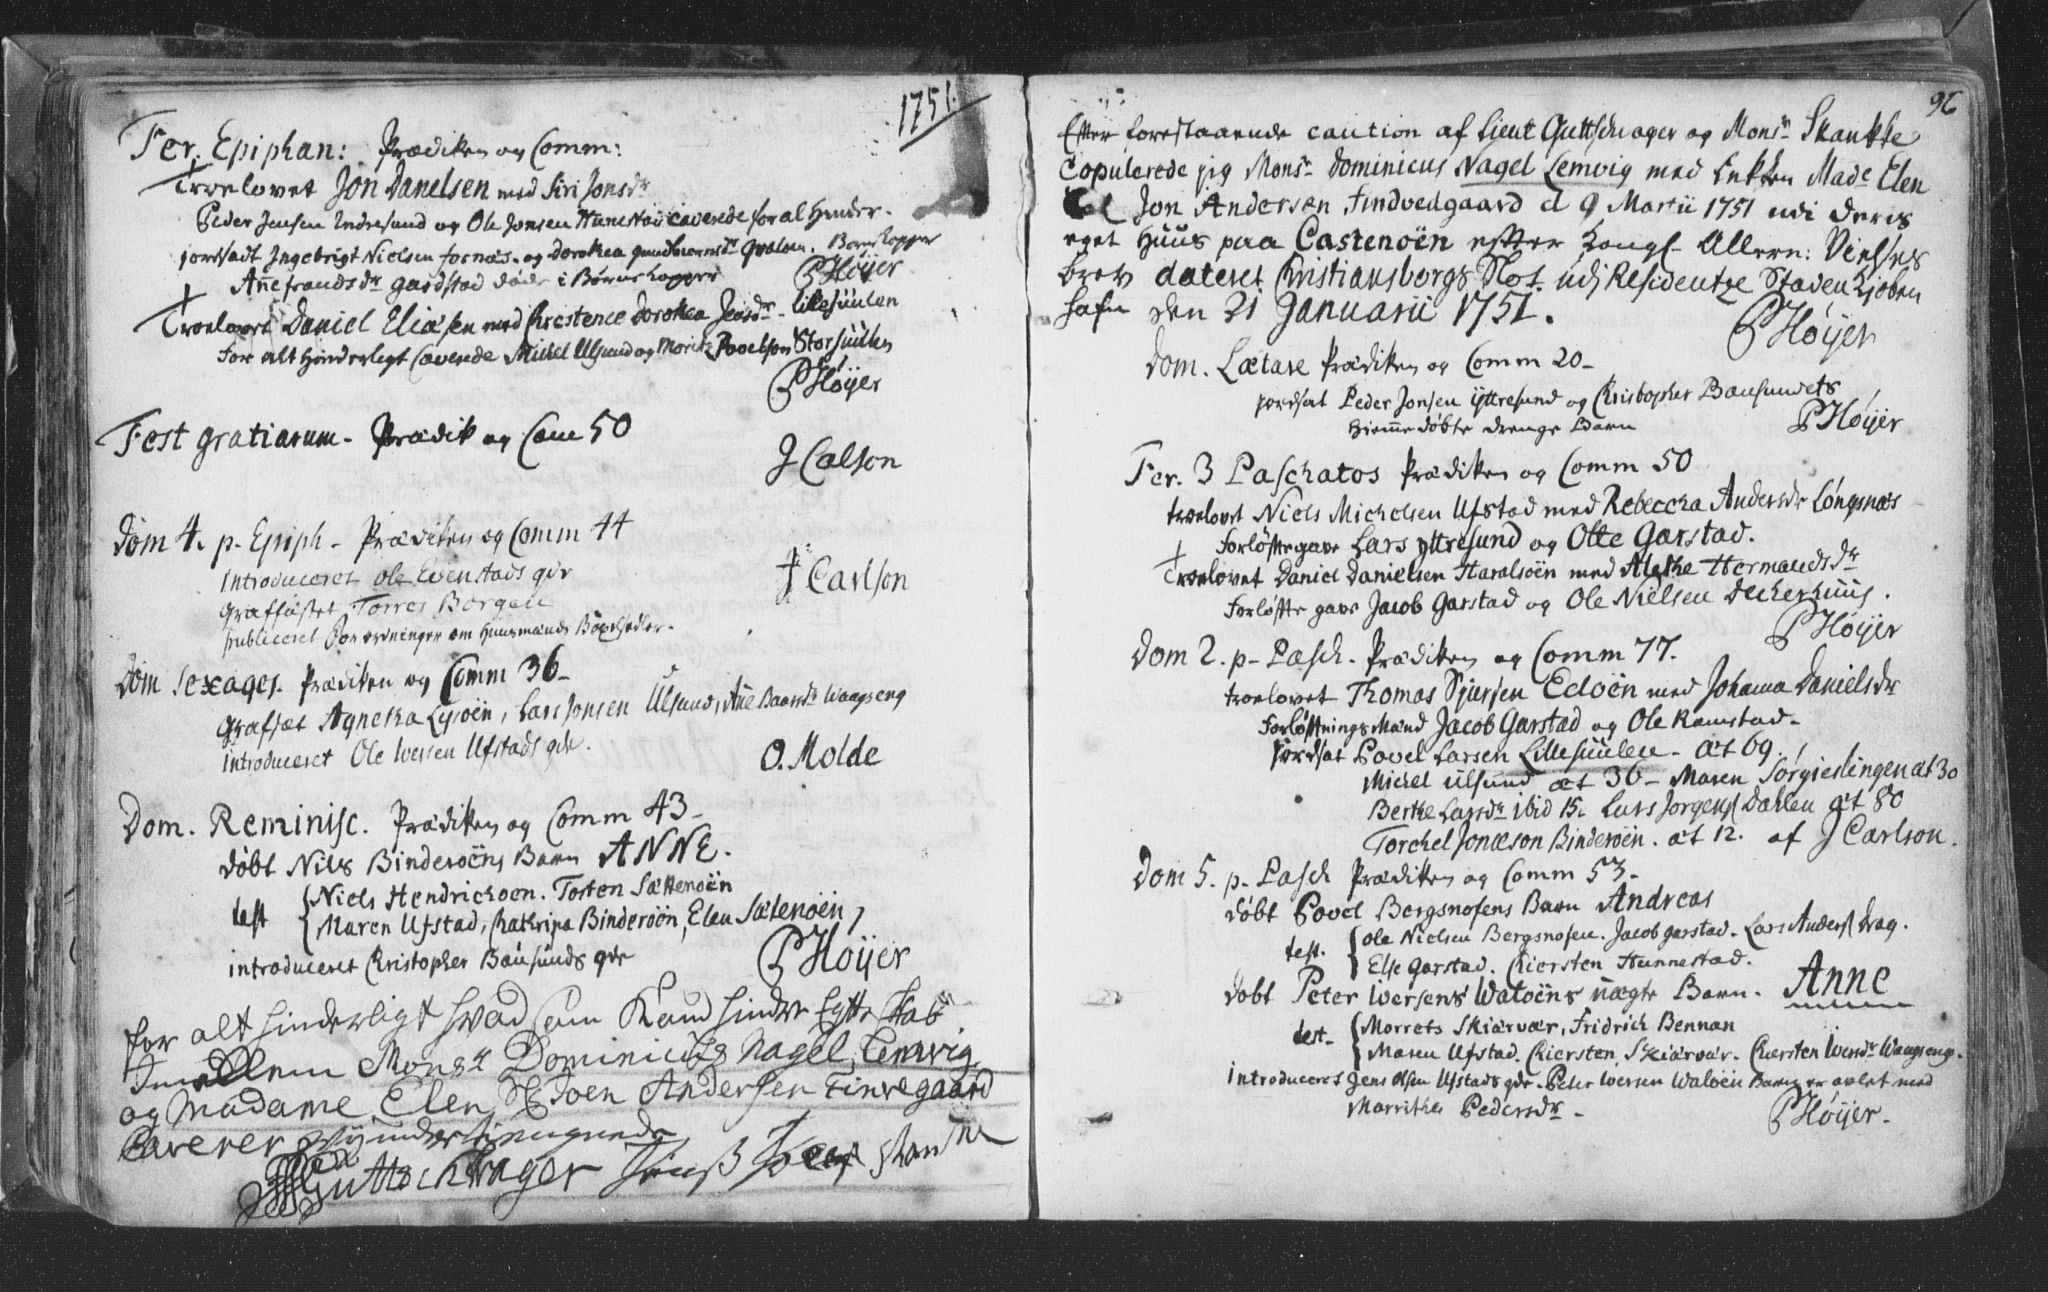 1751.
Fer. Epiphan: Prædiken og Comm:
Troelovet Jon Danelsen med Siri Jonsdr
Peder Jensen Indresund og Ole Jonsen Hanestad caverede for al Hinder.
jordsadt Ingebrigt Nielsen fosnæs. og Dorothea
Anne frandsdr Gardstad døde i Børne Kopper
PHøyer
Troelovet Daniel Eliæsen med Chrestence Dorothea Jensdr Likesuulen
For alt Hinderligt Caverede Michel Ulsund og Morits Povelson Storsuulen
PHøyer
Fest gratiarum. Prædik og Com 50
J Calson
Dom 4. p. Epiph. Prædiken og Comm 44
Introduceret Ole Evenstads qde
Graffæstet Torres Borgen
J Carlson
publiceret Forordningen om Huusmænds Böxelsedler.
Dom Sexages. Prædiken og Comm 36
Grafsæt Agneta Lysøen, Lars Jonsen Ulsund, Ane Baarsdr Waagseng
introduceret Ole Iversen Ufstads qde.
O. Molde
Dom. Reminisc. Prædiken og Comm 43
døbt Nils Binderöens Barn ANNE.
test Niels Hendrichoen. Torsten Sættenöen
Maren Ufstad, Chatrina Binderöön, Elen Sætenöen
introduceret Christopher Bausunds qde
PHøyer
for alt hinderligt hvad som Kand hindre Egteskab
Imellem Monsr Dominicus Nagel Lemvig
og Madame Elen Sl Joen Andersen Finvegaard
Caverer vj underteignede
Guttschvager Jenss

96
Efter forestaaende caution af Lieut Guttschvager og Monsr Skankke
Copulerede jeg Monsr Dominicus Nagel Lemvig med Enken Made Elen
Sl Jon Andersen Findvedgaard d 9 Martii 1751 udi deres
eget Huus paa Castenöen efter Kongl. Allern: Vielses
brev dateret Christiansborgs Slot udj Residentze Staden Kjøben
hafn den 21 Januarii 1751.
PHøyer
Dom. Lætare Prædiken og Comm 20
jordsat Peder Jonsen Yttresund og Christopher Bausundets
Hiemmedøbte drenge Barn
PHøyer
Fer. 3 Paschatos Prædiken og Comm 50
troelovet Niels Michelsen Ufstad med Rebeccha Andersdr Löngsnæs
Forløfte gave Lars Yttresund og Otte Garstad.
Troelovet Daniel Danielsen Haralsöen med Alethe Hermandsdr
Forløfte gave Jacob Garstad og Ole Nielsen Deckerhuus.
PHøyer
Dom 2. p. Pasch. Prædiken og Comm 77.
troelovet Thomas Sjursen Edöen med Johanna Danielsdr
Forløftnings Mænd Jacob Garstad og Ole Ramstad
jordsat Povel Larsen Lillesuulen æt 69.
Michel Ulsund æt 36 Maren Sørgieslingen æt 30
Berthe Larsdr ibid 15. Lars Jørgens Dahlen æt 80
Torchel Jonæson Binderöen. æt 12. af J Carlson.
Dom 5. p. Pasch Prædiken og Comm 53.
døbt Povel Bergsnosens Barn Andreas
test. Ole Nielsen Bergsnosen. Jacob Garstad. Lars Anders Drag.
Else Garstad. Kiersten Hannestad.
døbt Peter Iversens Waløens uægte Barn. Anne
test Morrets Skiærvær, Fridrich Bennan
Maren Ufstad. Kiersten Skiærvær. Kiersten Iversdr Waagseng.
Introduceret Jens Olsen Ufstads qde. Peter Iversen Waløen Barn er avlet med
Marrithe Pedersdr
PHøyer.